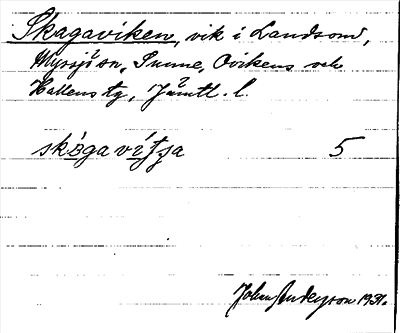 Skagaviken, vik i Landsom,
Myssjö sn, Sunne, Ovikens och
Hallens tg, Jämtl. l.
skágavítja 5
John Andersson 1931.